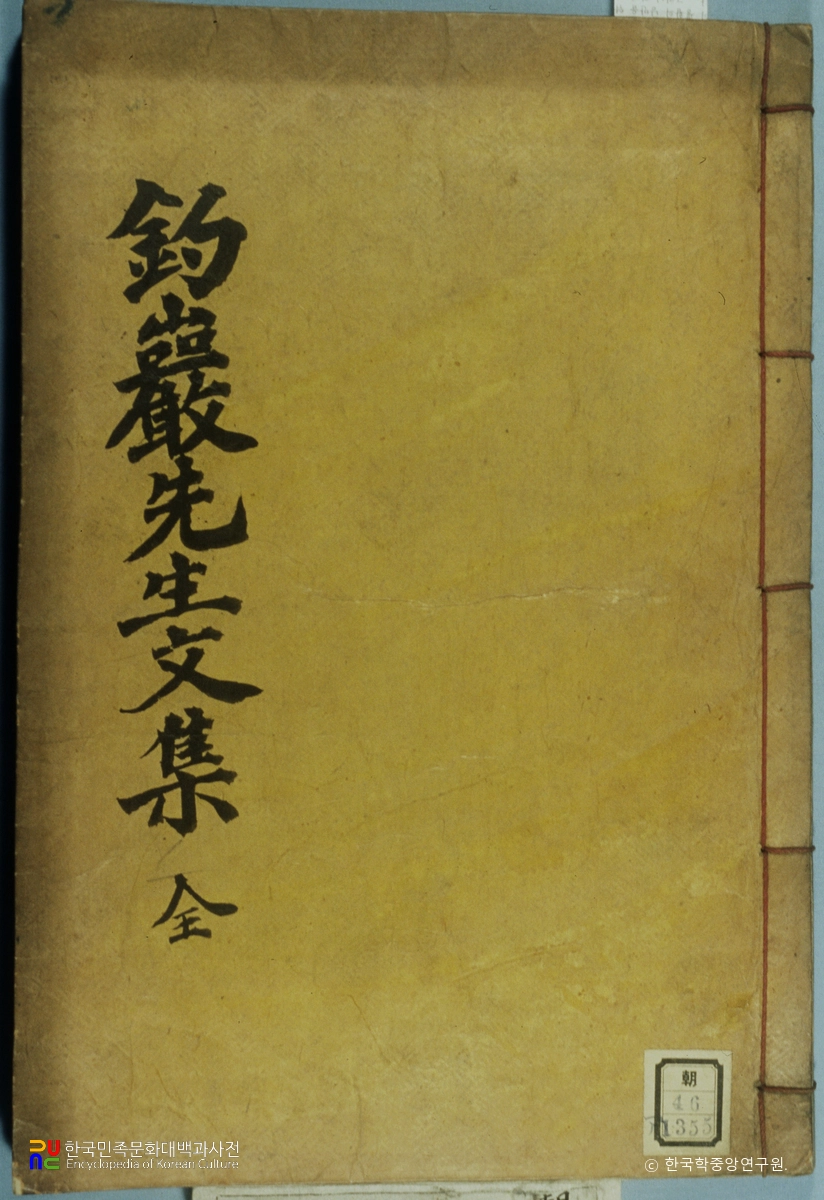 釣巖先生文集 全
朝
46
1355
한국민족문화대백과사전
Encyclopedia of Korean Culture
© 한국학중앙연구원.